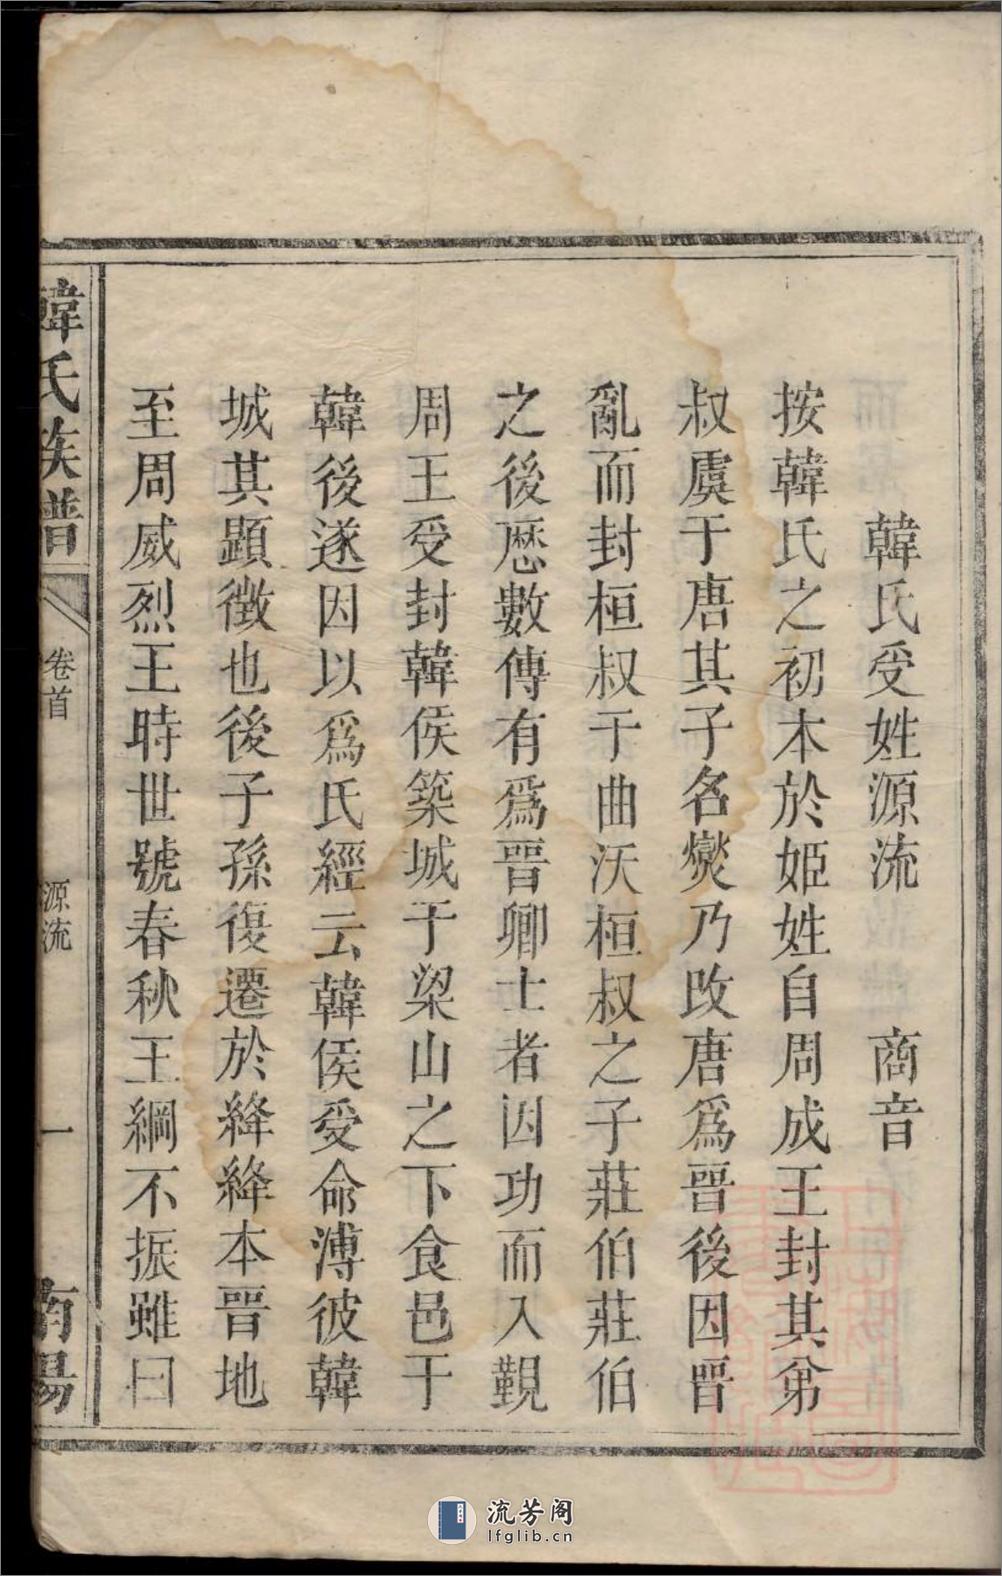 韓氏受姓源流　商音
按韓氏之初本於姬姓自周成王封其弟
叔虞于唐其子名燮乃改唐爲晉後因晉
亂而封桓叔于曲沃桓叔之子莊伯莊伯
之後歷數傳有爲晉卿士者因功而入覲
周王受封韓侯築城于梁山之下食邑于
韓後遂因以爲氏經云韓侯受命溥彼韓
城其顯徵也後子孫復遷於絳絳本晉地
至周威烈王時世號春秋王綱不振雖曰
韓氏族譜　卷首　源流　一　南陽
流芳阁
lfglib.cn